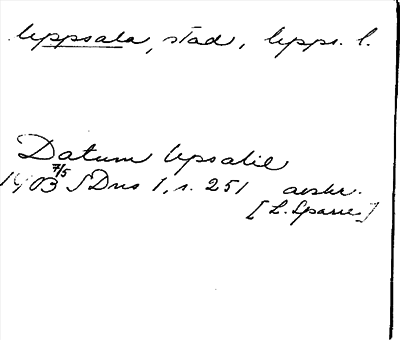 Uppsala, stad, Upps. l.
Datum Upsalie
1403 7/5 SDns 1, s. 251 avskr.
[L. Sparre]